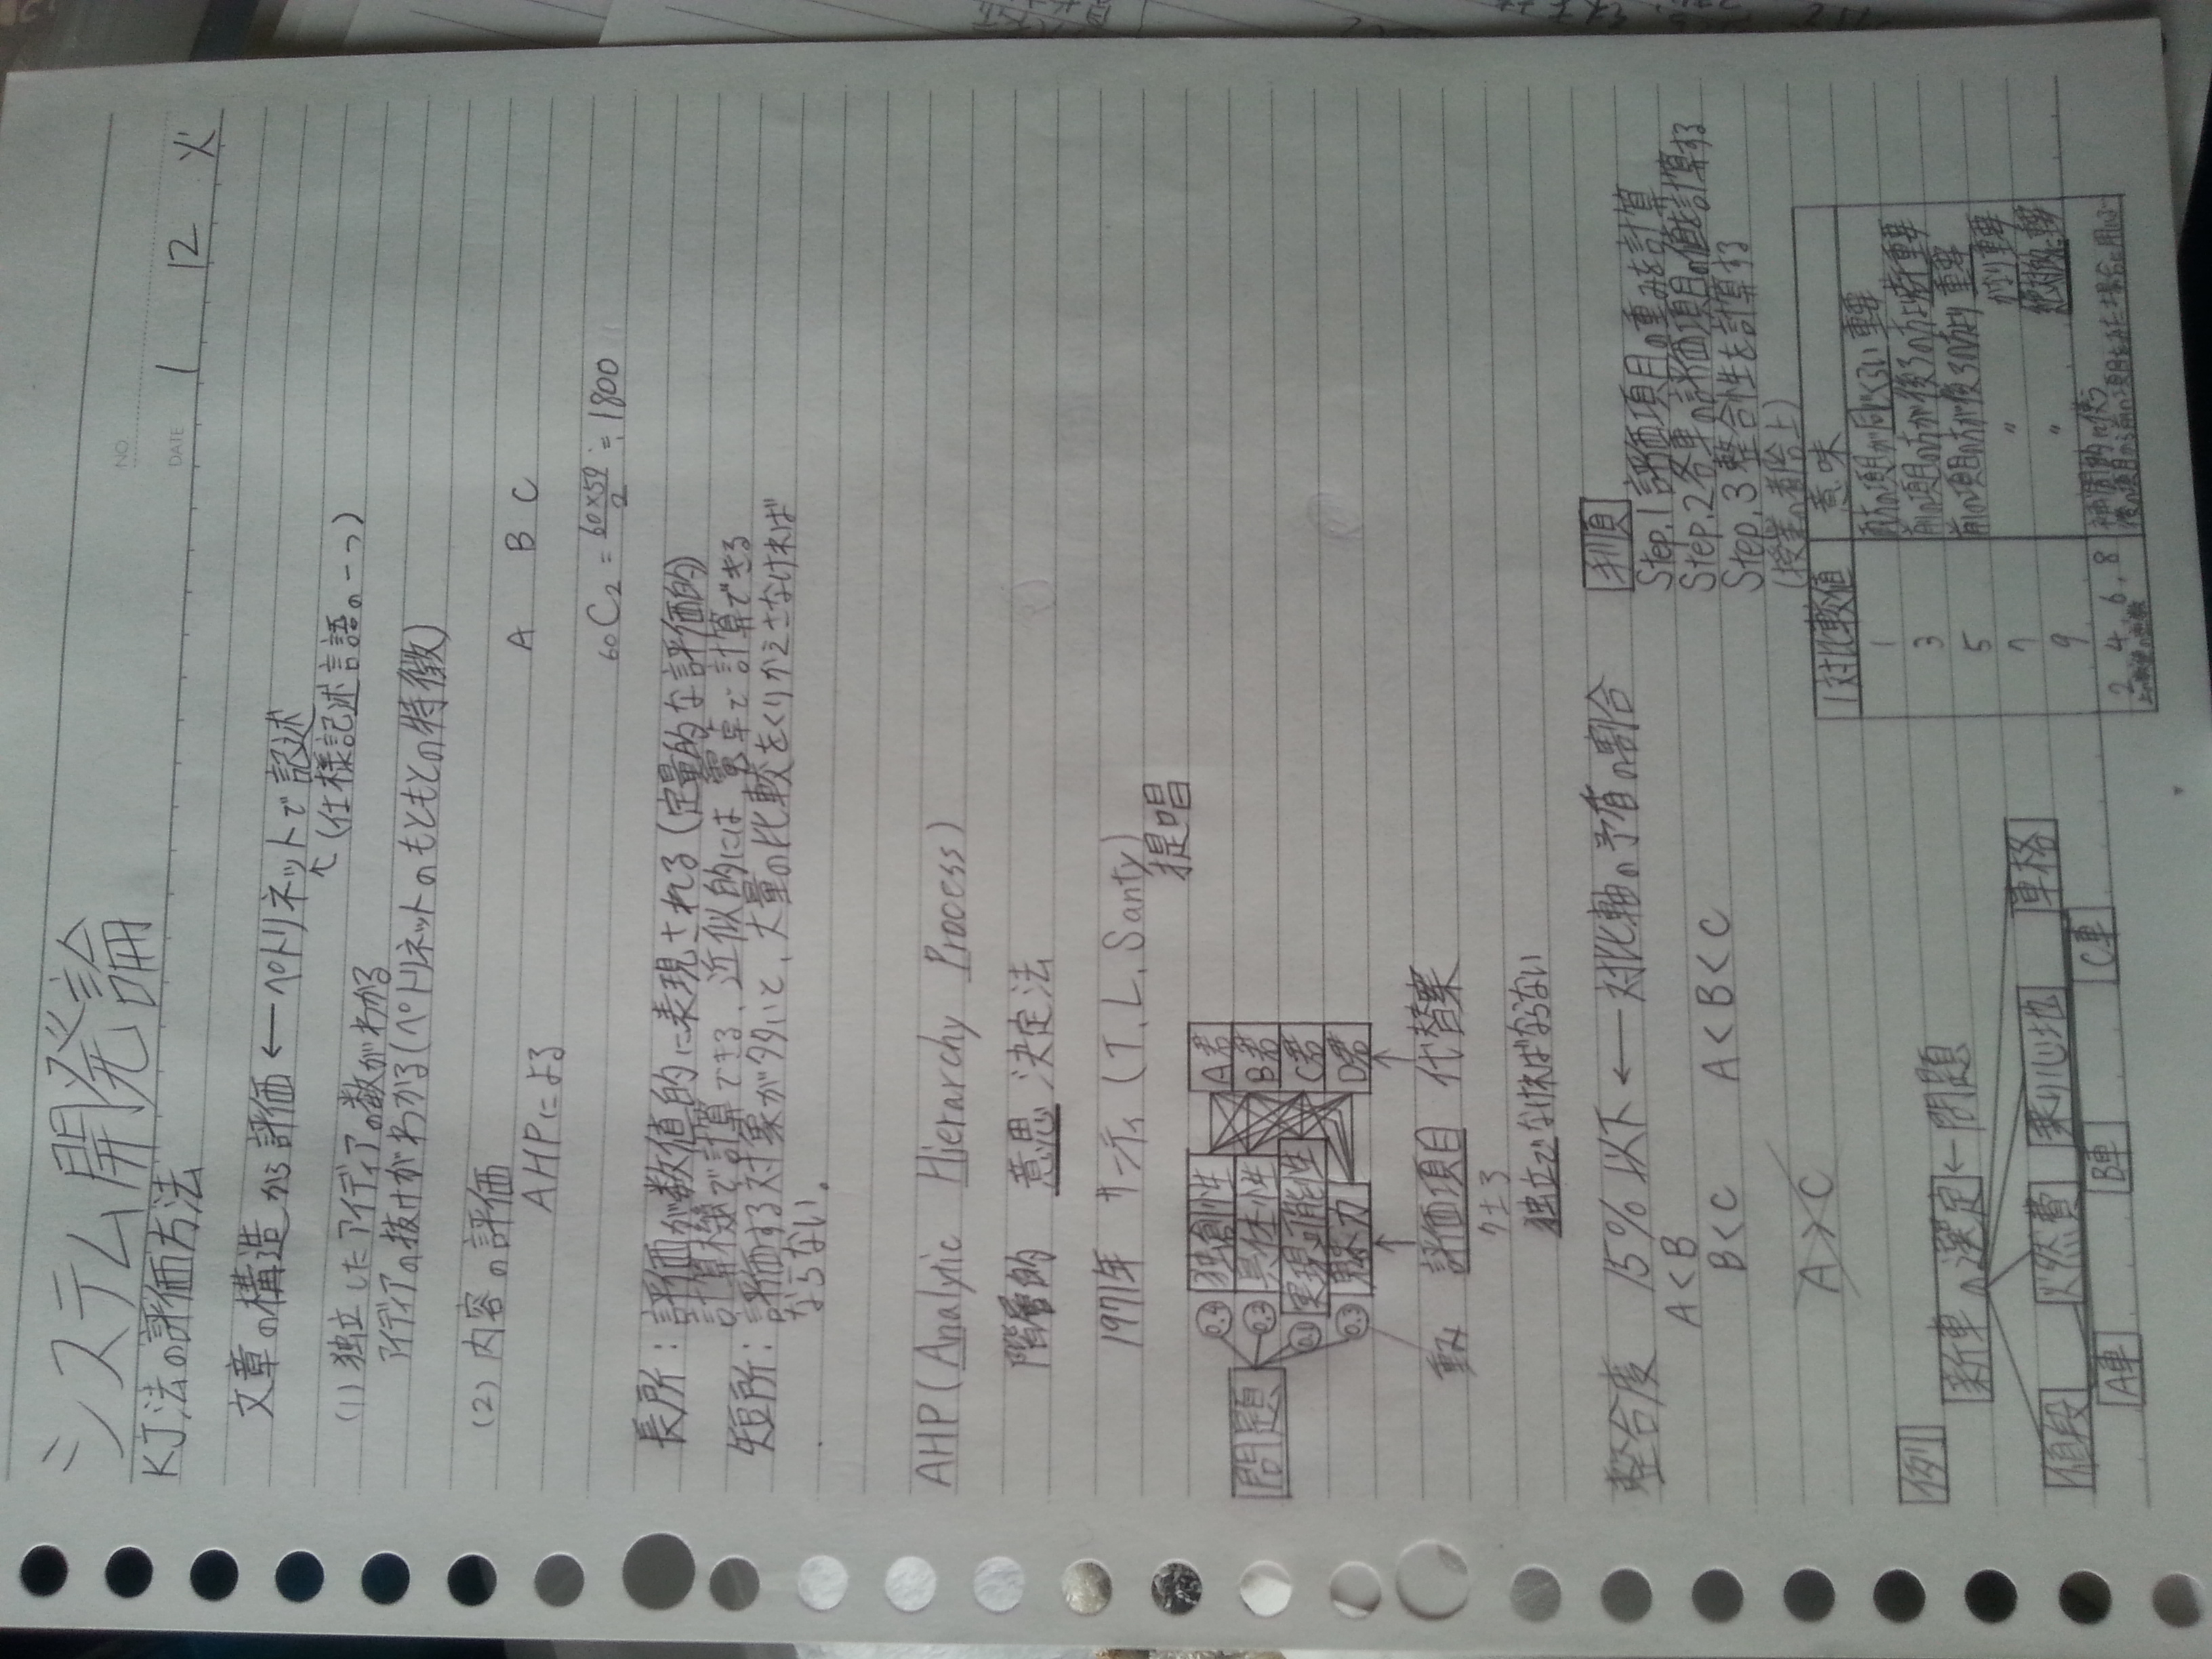 システム開発論
NO.
DATE 1 12 火
KJ法の評価方法
文章の構造から評価 ← ペトリネットで記述
↑(仕様記述言語の一つ)
(1) 独立したアイディアの数がわかる
アイディアの抜けがわかる(ペトリネットのもともとの特徴)
(2) 内容の評価
AHPによる
A B C
60C2 = 60×59/2 ≒ 1800
長所:評価が数値的に表現される(定量的な評価的)
計算機で計算できる、近似的には電卓で計算できる
短所:評価する対象が多いと、大量の比較をくりかえさなければ
ならない。
AHP(Analytic Hierarchy Process)
階層的 意思決定法
1971年 サーティ(T.L.Santy)
提唱
問題
0.4 独創性 A君
0.2 具体性 B君
0.1 実現可能性 C君
0.3 魅力 D君
重み 評価項目 代替案
7±3
独立でなければならない
整合度 15%以下 ← 一対比較の矛盾の割合
A<B
B<C A<B<C
A>C
例
新車の選定 ← 問題
値段 燃費 乗り心地 車格
A車 B車 C車
手順
Step.1 評価項目の重みを計算
Step.2 各車の評価項目の値を計算する
Step.3 整合性を計算する
(授業の都合上)
1対比較値 意味
1 両方の項目が同じくらい重要
3 前の項目の方が後ろの方より若干重要
5 前の項目の方が後ろの方より重要
7 〃 かなり重要
9 〃 絶対的に重要
2 4 6 . 8 補間的に使う
上の数値の
後の項目から前の項目をみた場合に用いる